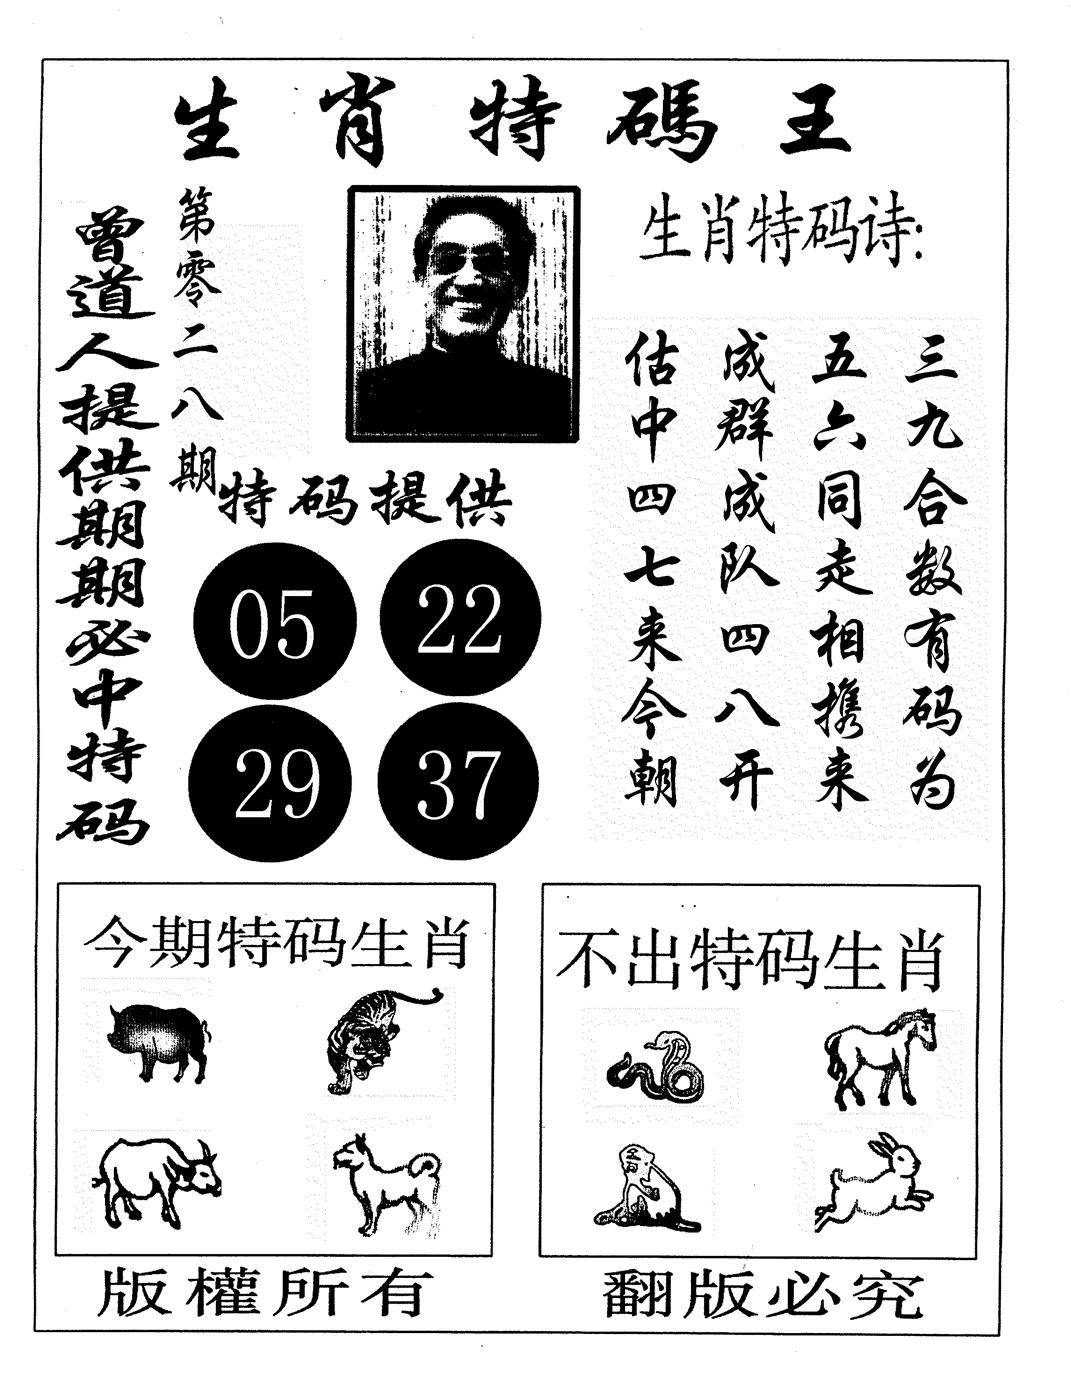 生肖特碼王
曾道人提供期期必中特码
第零二八期
生肖特码诗:
三九合数有码为
五六同走相携来
成群成队四八开
估中四七来今朝
特码提供
05
22
29
37
今期特码生肖
不出特码生肖
版權所有
翻版必究